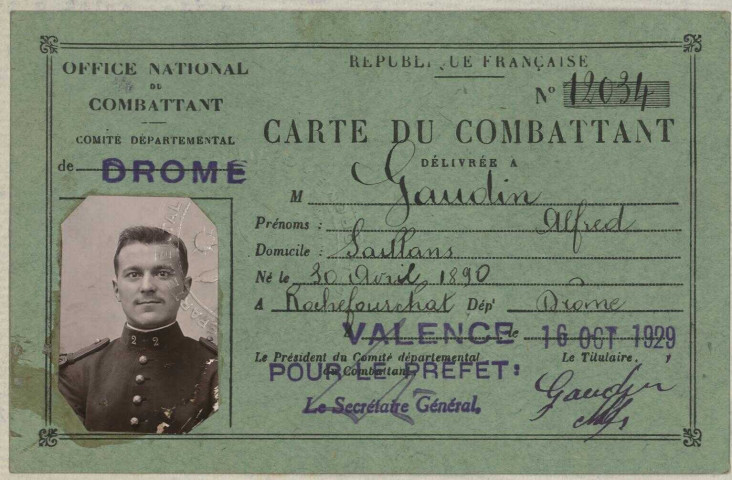 OFFICE NATIONAL
DU
COMBATTANT
COMITÉ DÉPARTEMENTAL
de DROME
RÉPUBLIQUE FRANÇAISE
N° 12034
CARTE DU COMBATTANT
DÉLIVRÉE A
M Gaudin
Prénoms : Alfred
Domicile : Saillans
Né le 30 Avril 1890
A Rochefourchat Dépt Drôme
A VALENCE le 16 OCT 1929
Le Président du Comité départemental
du Combattant,
Le Titulaire,
POUR LE PRÉFET:
Le Secrétaire Général,
Gaudin
2 2